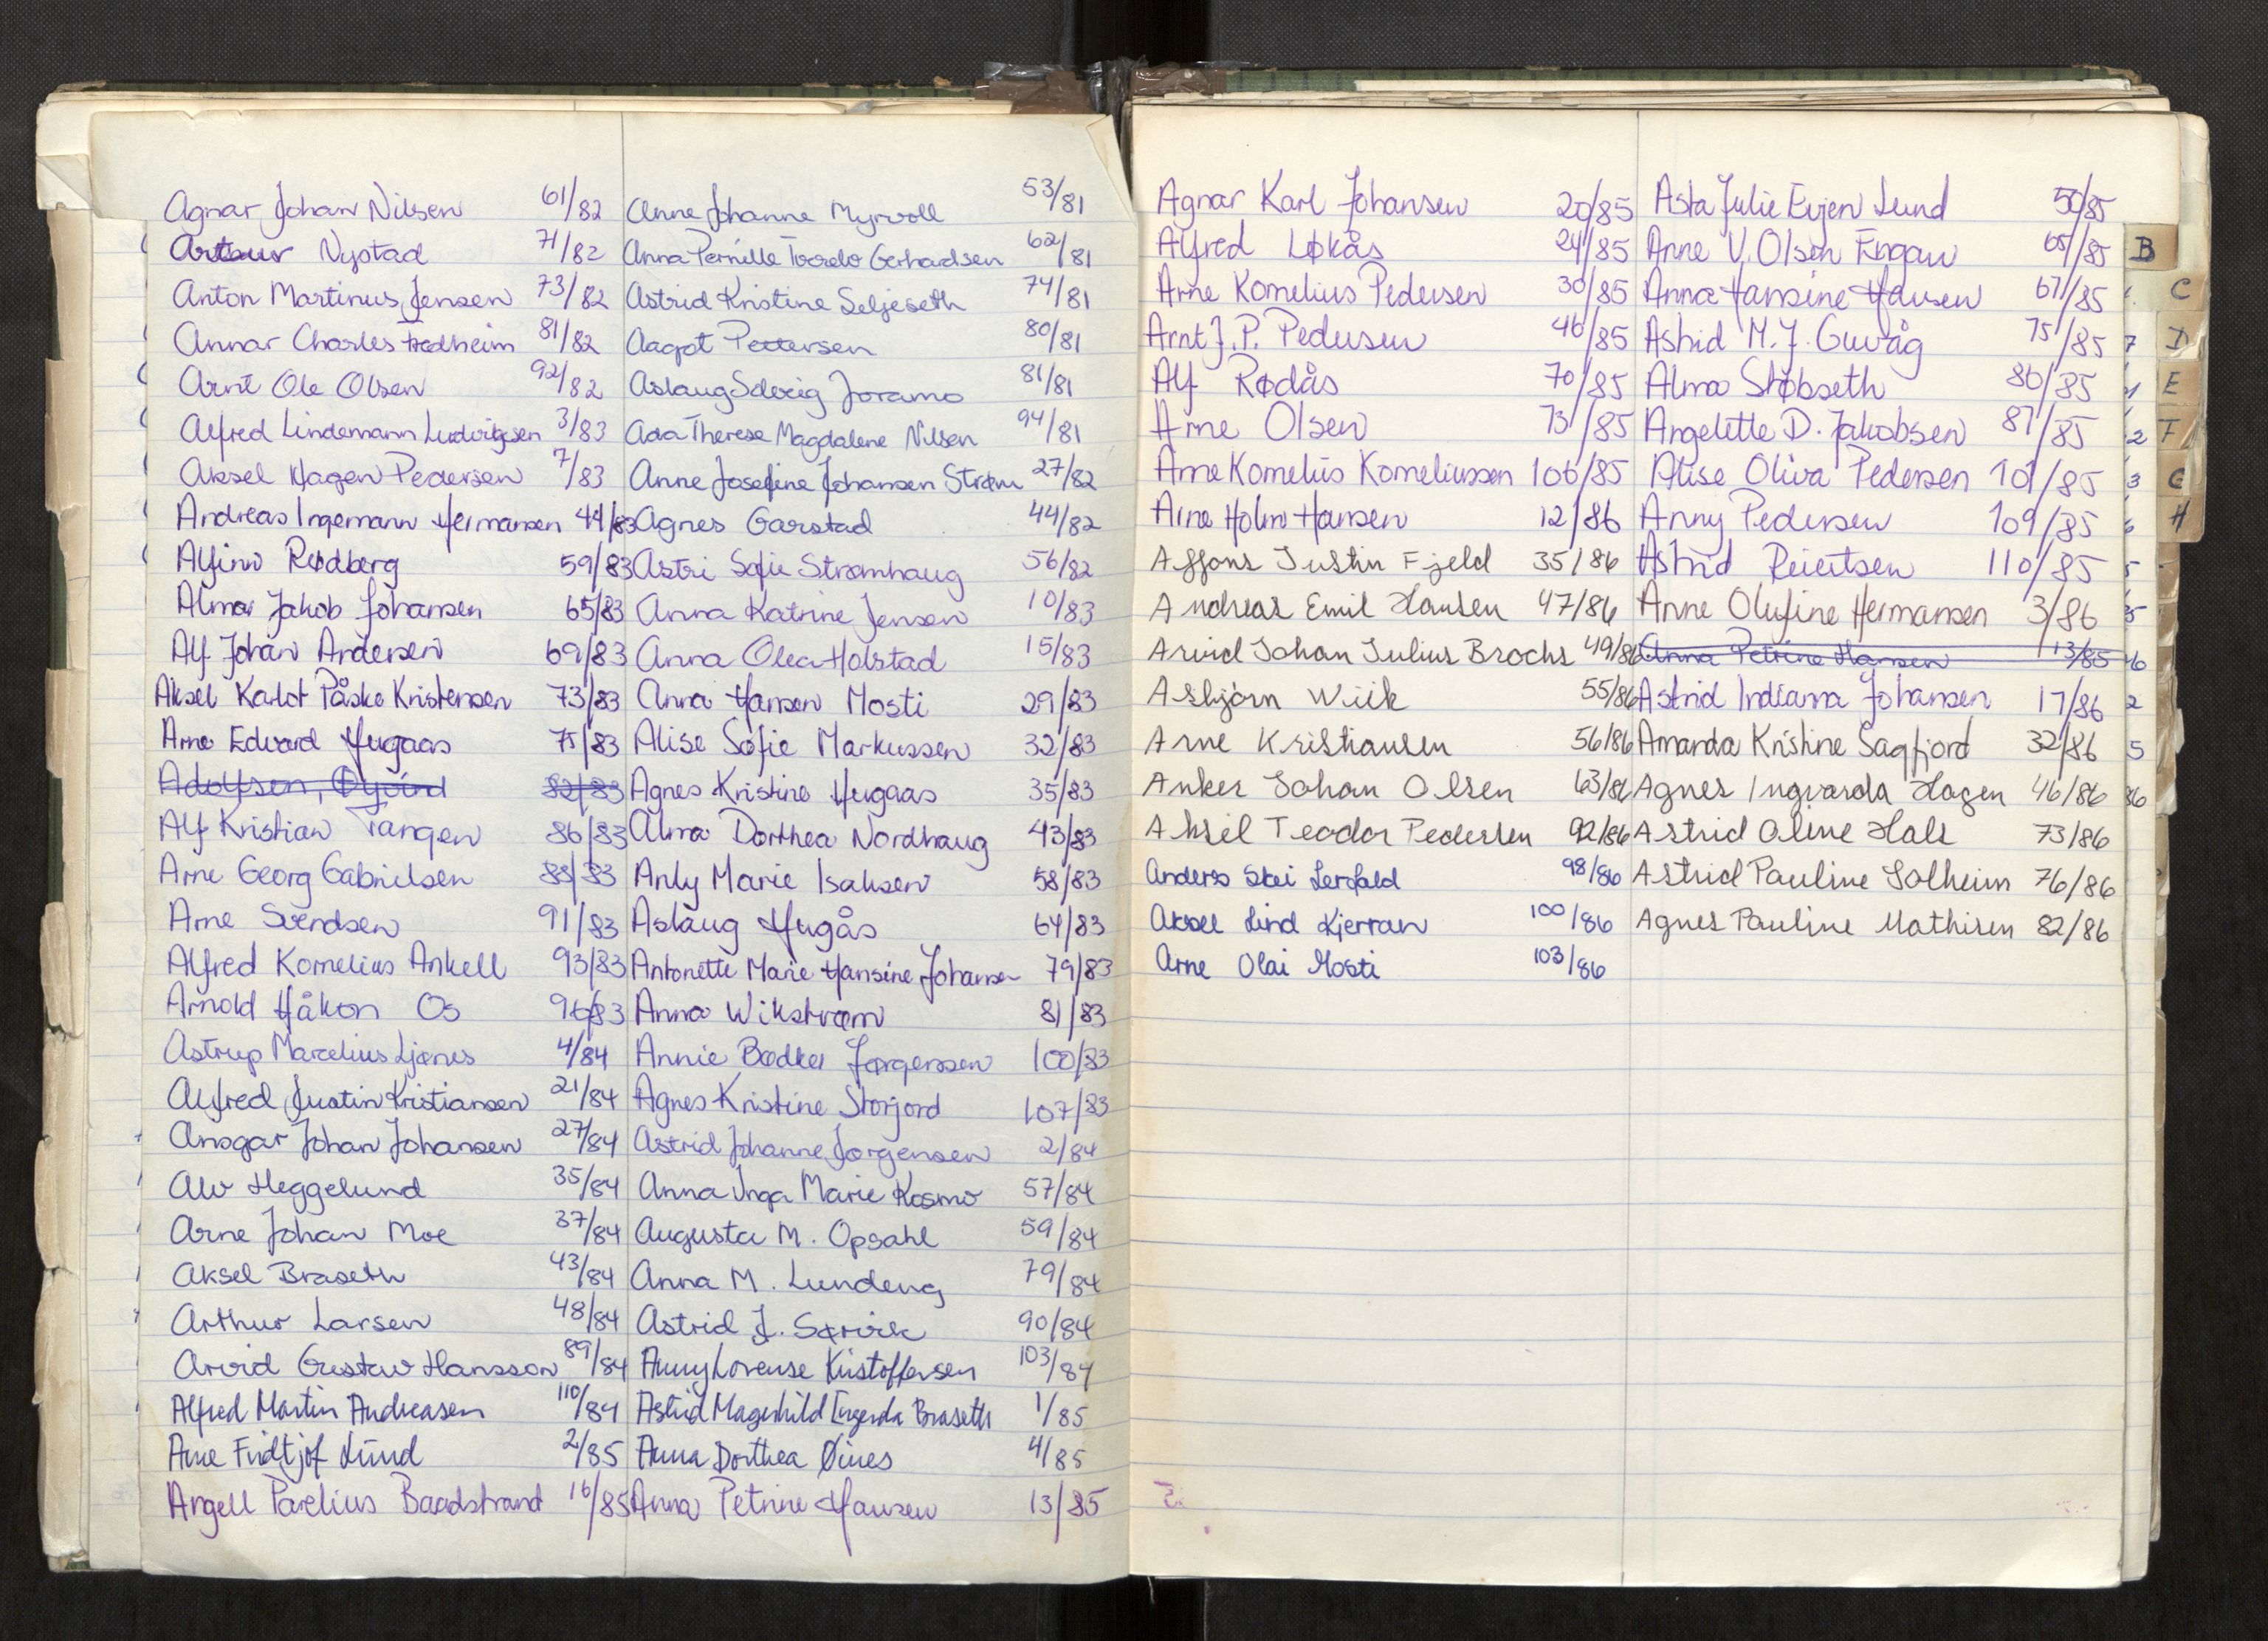 Agnar Johan Nilsen 61/82
Arthur Nystad 71/82
Anton Martinus Jensen 73/82
Annar Charles Fredheim 81/82
Arnt Ole Olsen 92/82
Alfred Lindemann Ludvigsen 3/83
Aksel Hagen Pedersen 7/83
Andreas Ingemann Hermansen 44/83
Alfinn Rødberg 59/83
Almar Jakob Johansen 65/83
Alf Johan Andersen 69/83
Aksel Karlot Påske Kristensen 73/83
Arne Edvard Hugaas 75/83
Adolfsen, Øyvind 82/83
Alf Kristian Tangen 86/83
Arne Georg Gabrielsen 88/83
Arne Svendsen 91/83
Alfred Kornelius Ankell 93/83
Arnold Håkon Os 96/83
Astrup Marcelius Ljønes 4/84
Alfred Justin Kristiansen 21/84
Ansgar Johan Johansen 27/84
Alv Heggelund 35/84
Arne Johan Moe 37/84
Aksel Braseth 43/84
Arthur Larsen 48/84
Arvid Gustav Hansson 89/84
Alfred Martin Andreasen 110/84
Arne Fridtjof Lund 2/85
Angell Parelius Baadstrand 16/85
Anne Johanne Myrvoll 53/81
Anna Pernille Gerhardsen 62/81
Astrid Kristine Seljeseth 74/81
Aagot Pettersen 80/81
Aslaug Solveig Joramo 81/81
Ada Therese Magdalene Nilsen 94/81
Anne Josefine Johansen Strøm 27/82
Agnes Garstad 44/82
Astri Sofie Strømhaug 56/82
Anna Katrine Jensen 10/83
Anna Olea Holstad 15/83
Anna Hansen Mosti 29/83
Alise Sofie Markussen 32/83
Agnes Kristine Hugaas 35/83
Alma Dorthea Nordhaug 43/83
Anly Marie Isaksen 58/83
Aslaug Hugås 64/83
Antonette Marie Hansine Johansen 79/83
Anna Wikstrøm 81/83
Annie Bødker Jørgensen 100/83
Agnes Kristine Storjord 107/83
Astrid Johanne Jørgensen 2/84
Anna Inga Marie Kosmo 57/84
Augusta M. Opsahl 59/84
Anna M. Lundeng 79/84
Astrid J. Sørvik 90/84
Anny Lovense Kristoffersen 103/84
Astrid Magnhild Ingerda Braseth 1/85
Anna Dorthea Øines 4/85
Anna Petrine Hansen 13/85
Agnar Karl Johansen 20/85
Alfred Løkås 24/85
Arne Kornelius Pedersen 30/85
Arnt J. P. Pedersen 46/85
Alf Rødås 70/85
Arne Olsen 73/85
Arne Kornelius Korneliussen 106/85
Arne Holm Hansen 12/86
Affons Justin Fjeld 35/86
Andreas Emil Hansen 47/86
Arvid Johan Julius Brochs 49/86
Asbjørn Wiik 55/86
Arne Kristiansen 56/86
Anker Johan Olsen 63/86
Aksel Teodor Pedersen 92/86
Anders Skei Lerfald 98/86
Aksel Lind Kjerran 100/86
Arne Olai Mosti 103/86
Asta Julie Evjen Lund 50/85
Anne V. Olsen Engan 65/85
Anna Hansine Hansen 67/85
Astrid M. J. Guvåg 75/85
Alma Støbseth 86/85
Angelette D. Jakobsen 87/85
Alise Oliva Pedersen 101/85
Anny Pedersen 109/85
Astrid Reiertsen 110/85
Anne Olufine Hermansen 3/86
Anna Petrine Hansen 13/85
Astrid Indiana Johansen 17/86
Amanda Kristine Sagfjord 32/86
Agnes Ingvarda Hagen 46/86
Astrid Oline Hals 73/86
Astrid Pauline Solheim 76/86
Agnes Pauline Mathisen 82/86
B
C
D
E
F
G
H